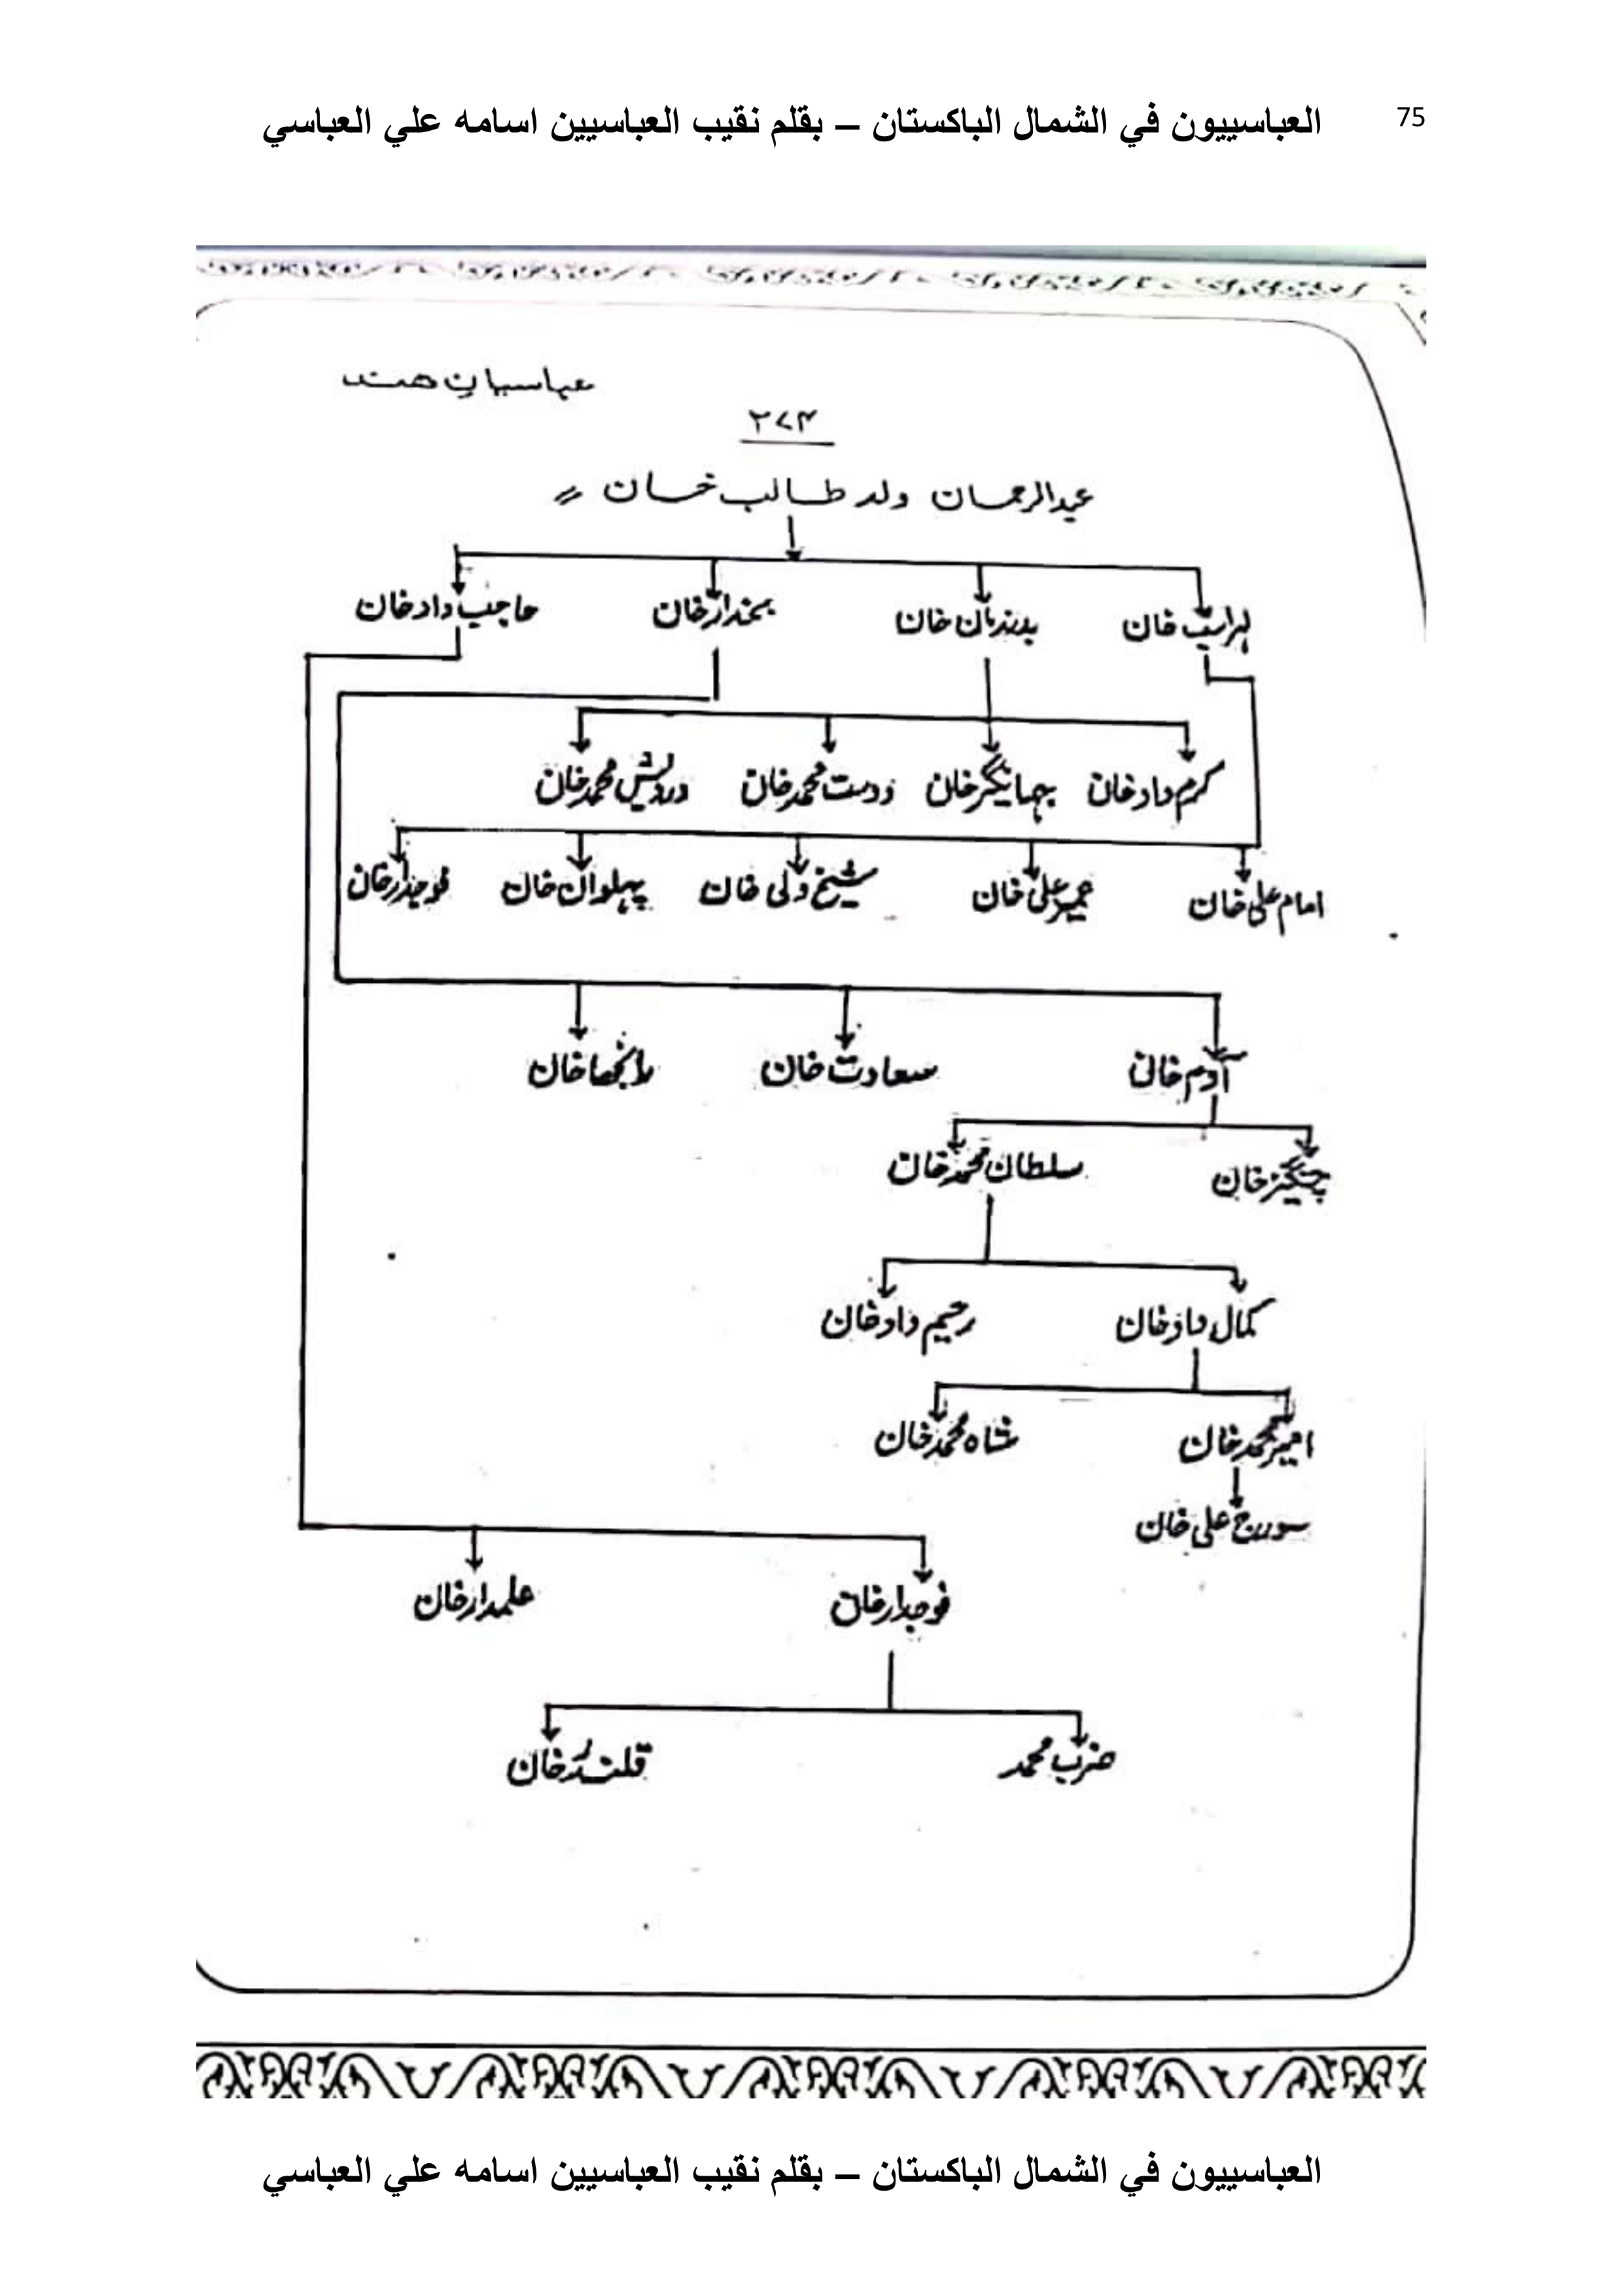 75 العباسييون في الشمال الباكستان – بقلم نقيب العباسيين اسامه علي العباسي
عباسیانِ هند
۲۷۴
عبدالرحمان ولد طالب خان
لہراسب خان بدرزمان خان بخدار خان حاجب داد خان
کرم داد خان جہانگیر خان دوست محمد خان درویش محمد خان
امام علی خان علی خان شیخ ولی خان پہلوان خان فوجدار خان
آدم خان سعادت خان رانجھا خان
چنگیز خان سلطان محمد خان
کمال داد خان رحیم داد خان
امیر محمد خان شاہ محمد خان
سورج علی خان
فوجدار خان علمدار خان
ضرب محمد قلندر خان
العباسييون في الشمال الباكستان – بقلم نقيب العباسيين اسامه علي العباسي